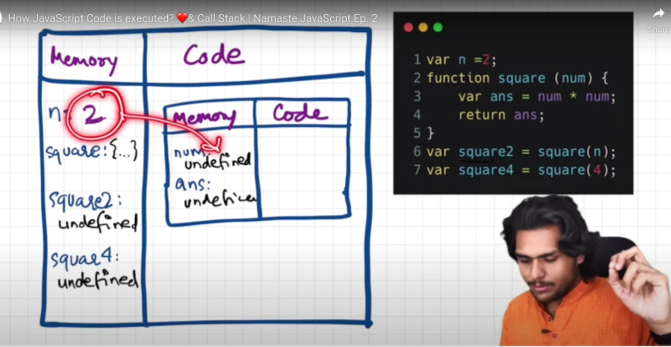 How JavaScript Code is executed? ❤️& Call Stack | Namaste JavaScript Ep. 2
Shar
Memory
Code
n: 2
square: {...}
square2:
undefined
square4:
undefined
Memory
Code
num:
undefined
ans:
undefined
1 var n =2;
2 function square (num) {
3 var ans = num * num;
4 return ans;
5 }
6 var square2 = square(n);
7 var square4 = square(4);